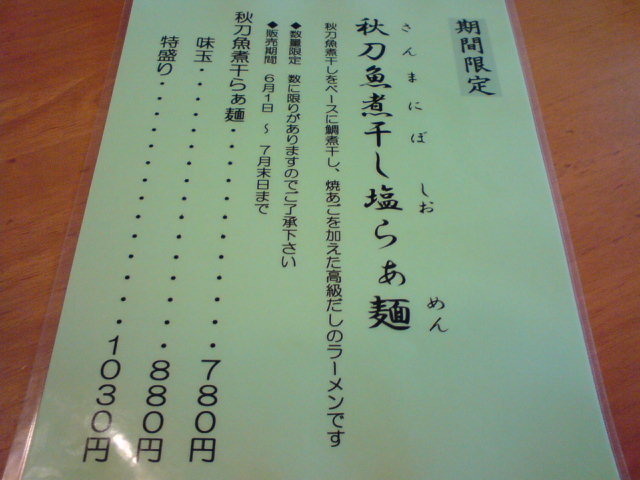 期間限定
さんまにぼ しお めん
秋刀魚煮干し塩らぁ麺
秋刀魚煮干しをベースに鯛煮干し、焼あごを加えた高級だしのラーメンです
◆数量限定 数に限りがありますのでご了承下さい
◆販売期間 6月1日 ～ 7月末日まで
秋刀魚煮干らぁ麺・・・・・・・・・780円
味玉・・・・・・・・・・・・・・880円
特盛り・・・・・・・・・・・・・1030円